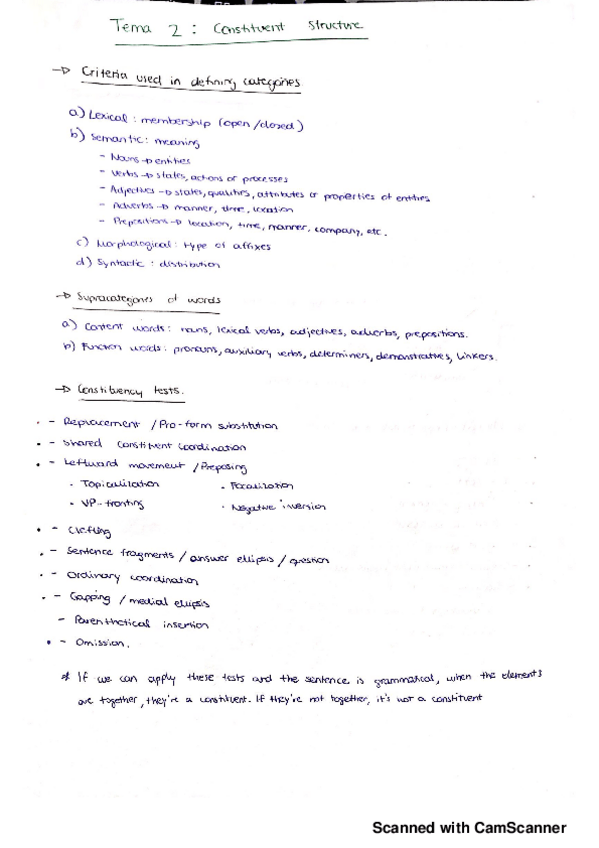 Tema 2 : Constituent Structure
→ Criteria used in defining categories
a) Lexical : membership (open/closed)
b) Semantic : meaning
- Nouns → entities
- Verbs → states, actions or processes
- Adjectives → states, qualities, attributes or properties of entities
- Adverbs → manner, time, location
- Prepositions → location, time, manner, company, etc.
c) Morphological : type of affixes
d) Syntactic : distribution
→ Supracategories of words
a) Content words : nouns, lexical verbs, adjectives, adverbs, prepositions.
b) Function words : pronouns, auxiliary verbs, determiners, demonstratives, linkers.
→ Constituency tests.
- Replacement / Pro-form substitution
- Shared constituent coordination
- Leftward movement / Preposing
· Topicalization · Focalization
· VP-fronting · Negative inversion
- Clefting
- Sentence fragments / answer ellipsis / question
- Ordinary coordination
- Gapping / medial ellipsis
- Parenthetical insertion
- Omission.
* If we can apply these tests and the sentence is grammatical, when the elements
are together, they're a constituent. If they're not together, it's not a constituent
Scanned with CamScanner